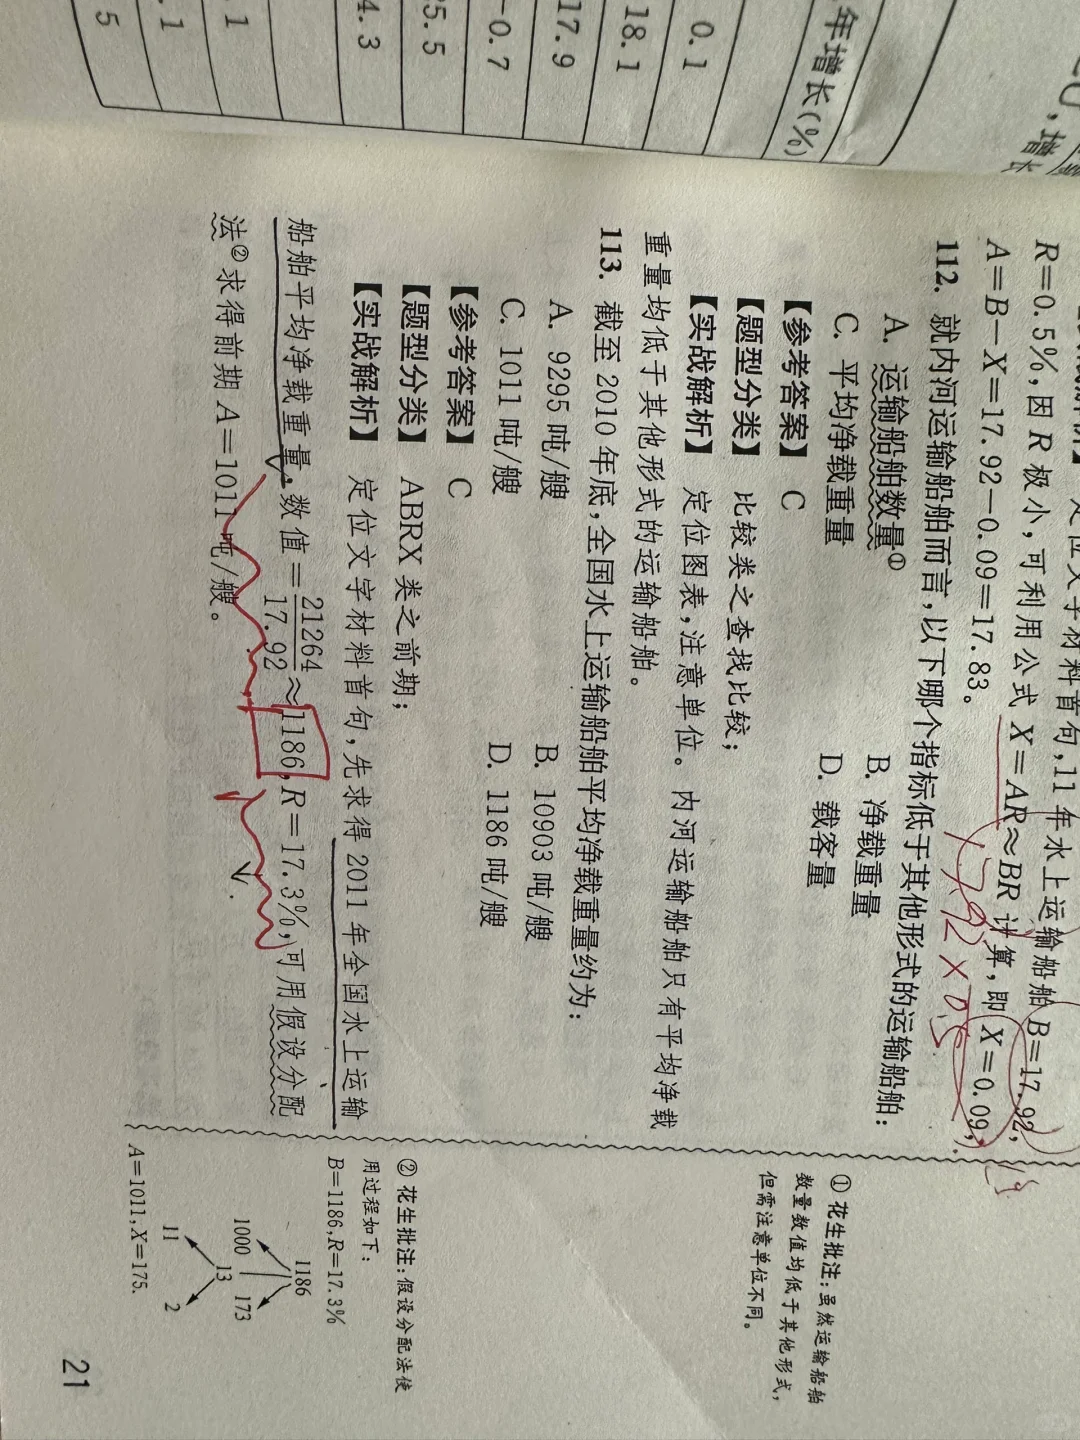 年增长(%)
0.1
18.1
17.9
-0.7
5.5
4.3
.1
.1
5
,增长
R=0.5%,因 R 极小,可利用公式 X=AR≈BR 计算,即 X=0.09,
A=B-X=17.92-0.09=17.83。
112. 就内河运输船舶而言,以下哪个指标低于其他形式的运输船舶:
A. 运输船舶数量①
B. 净载重量
C. 平均净载重量
D. 载客量
【参考答案】 C
【题型分类】 比较类之查找比较;
【实战解析】 定位图表,注意单位。内河运输船舶只有平均净载
重量均低于其他形式的运输船舶。
113. 截至 2010 年底,全国水上运输船舶平均净载重量约为:
A. 9295 吨/艘
B. 10903 吨/艘
C. 1011 吨/艘
D. 1186 吨/艘
【参考答案】 C
【题型分类】 ABRX 类之前期;
【实战解析】 定位文字材料首句,先求得 2011 年全国水上运输
船舶平均净载重量,数值=21264/17.92≈1186,R=17.3%,可用假设分配
法②求得前期 A=1011 吨/艘。
① 花生批注:虽然运输船舶
数量数值均低于其他形式,
但需注意单位不同。
② 花生批注:假设分配法使
用过程如下:
B=1186,R=17.3%
1186
1000 173
13
11 2
A=1011,X=175.
21